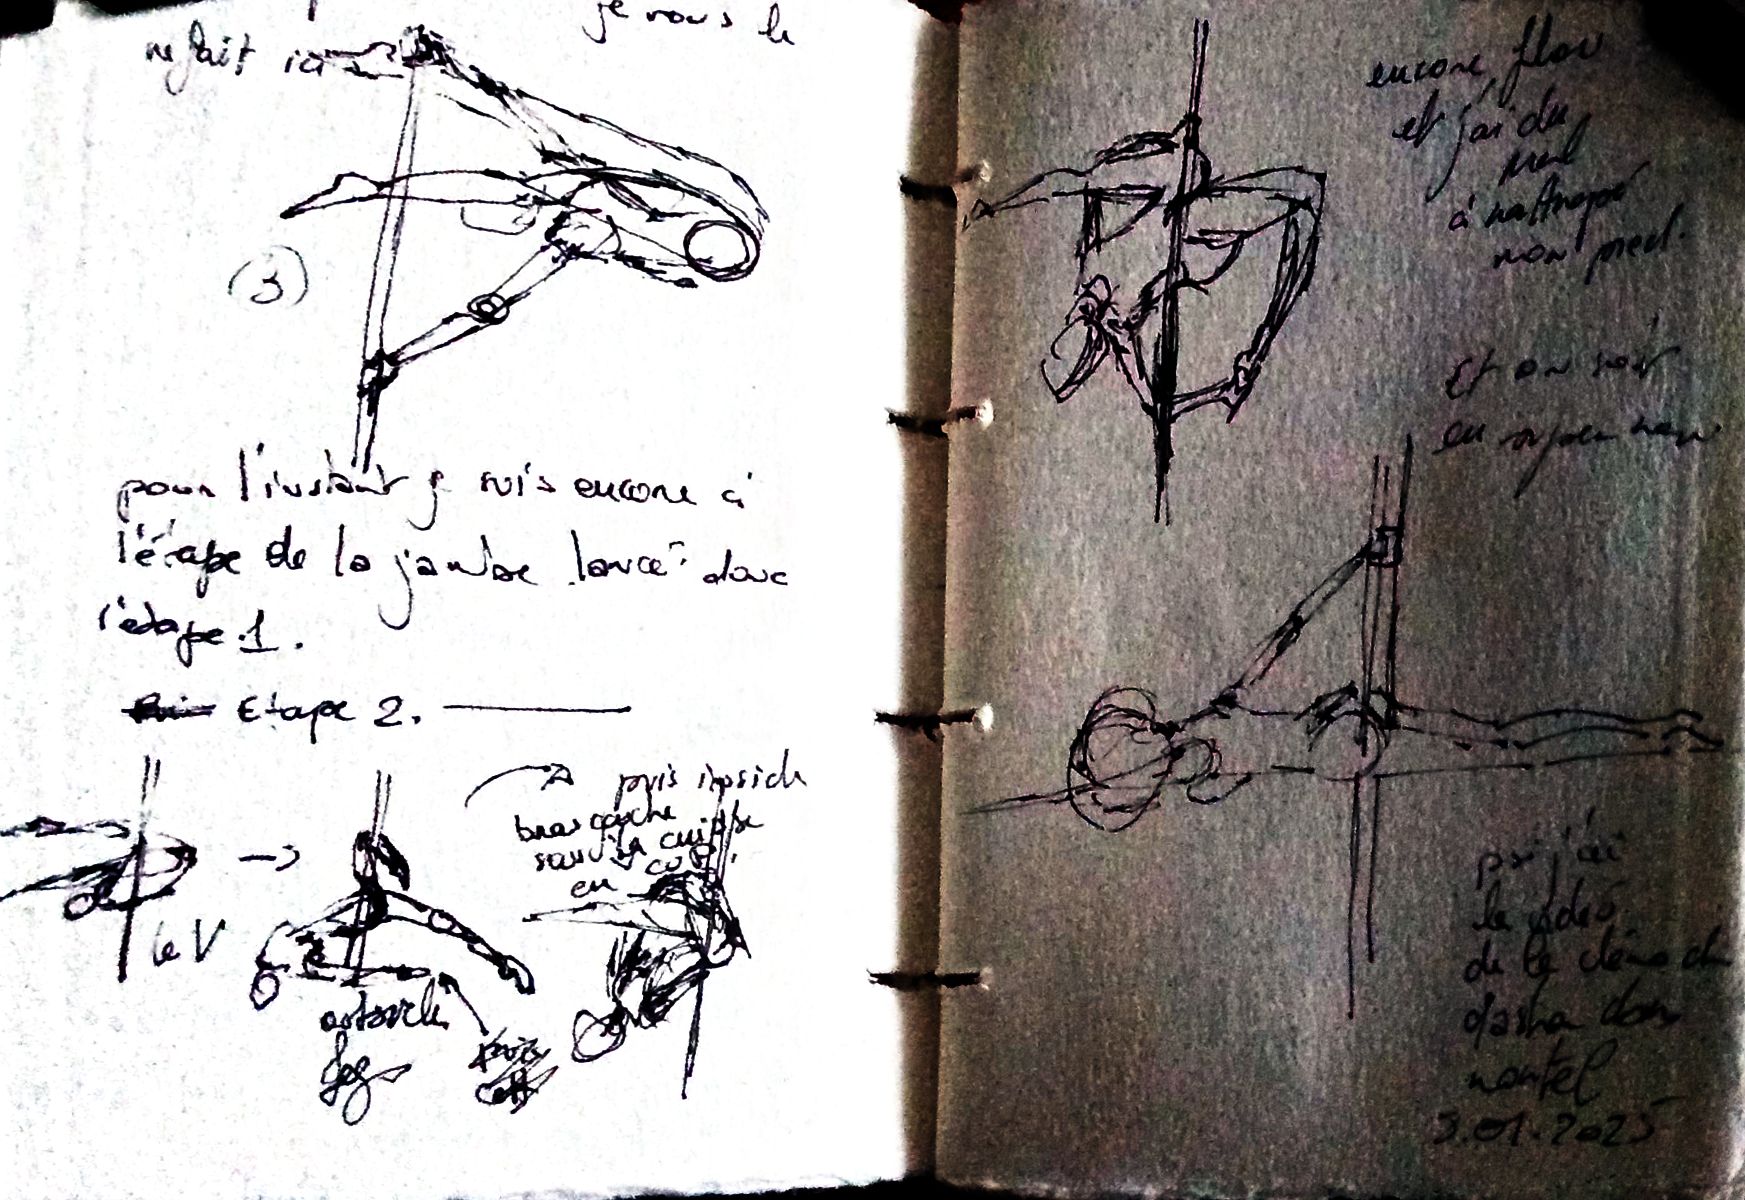 je vous le
refait ici
(3)
pour l'instant je suis encore à
l'étape de la jambe lancé donc
l'étape 1.
Etape 2.
puis inside
bras gauche
sous la cuisse
en
le V
outside
leg
encore flou
et j'ai du
mal
à rattraper
mon pied.
Et on voit
en
j'ai
la vidéo
de la démo de
dasha dans
mon tel
3.01.2025